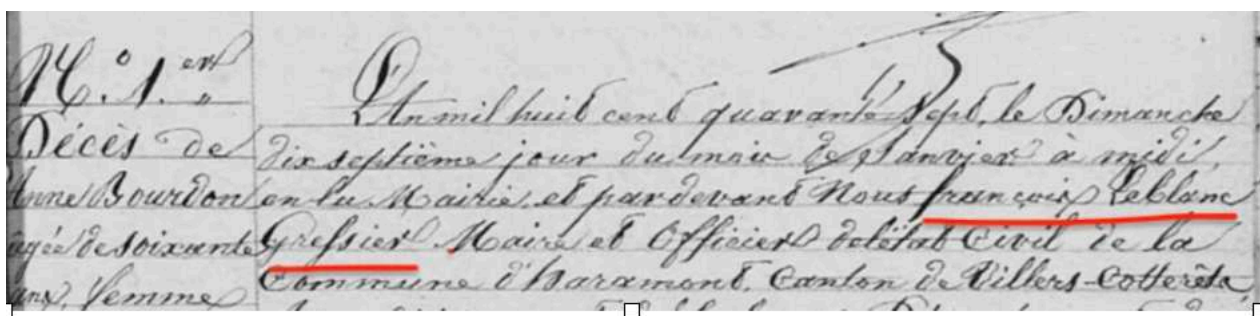 N.º 1.er
Décès de
Anne Bourdon
agée de soixante
ans, femme
L'An mil huit cent quarante Sept, le Dimanche
dix septième jour du mois de Janvier à midi,
en la Mairie et pardevant Nous françois Leblanc
Greffier Maire et Officier de létat Civil de la
Commune d'Haramont, Canton de Villers-Cotterêts,